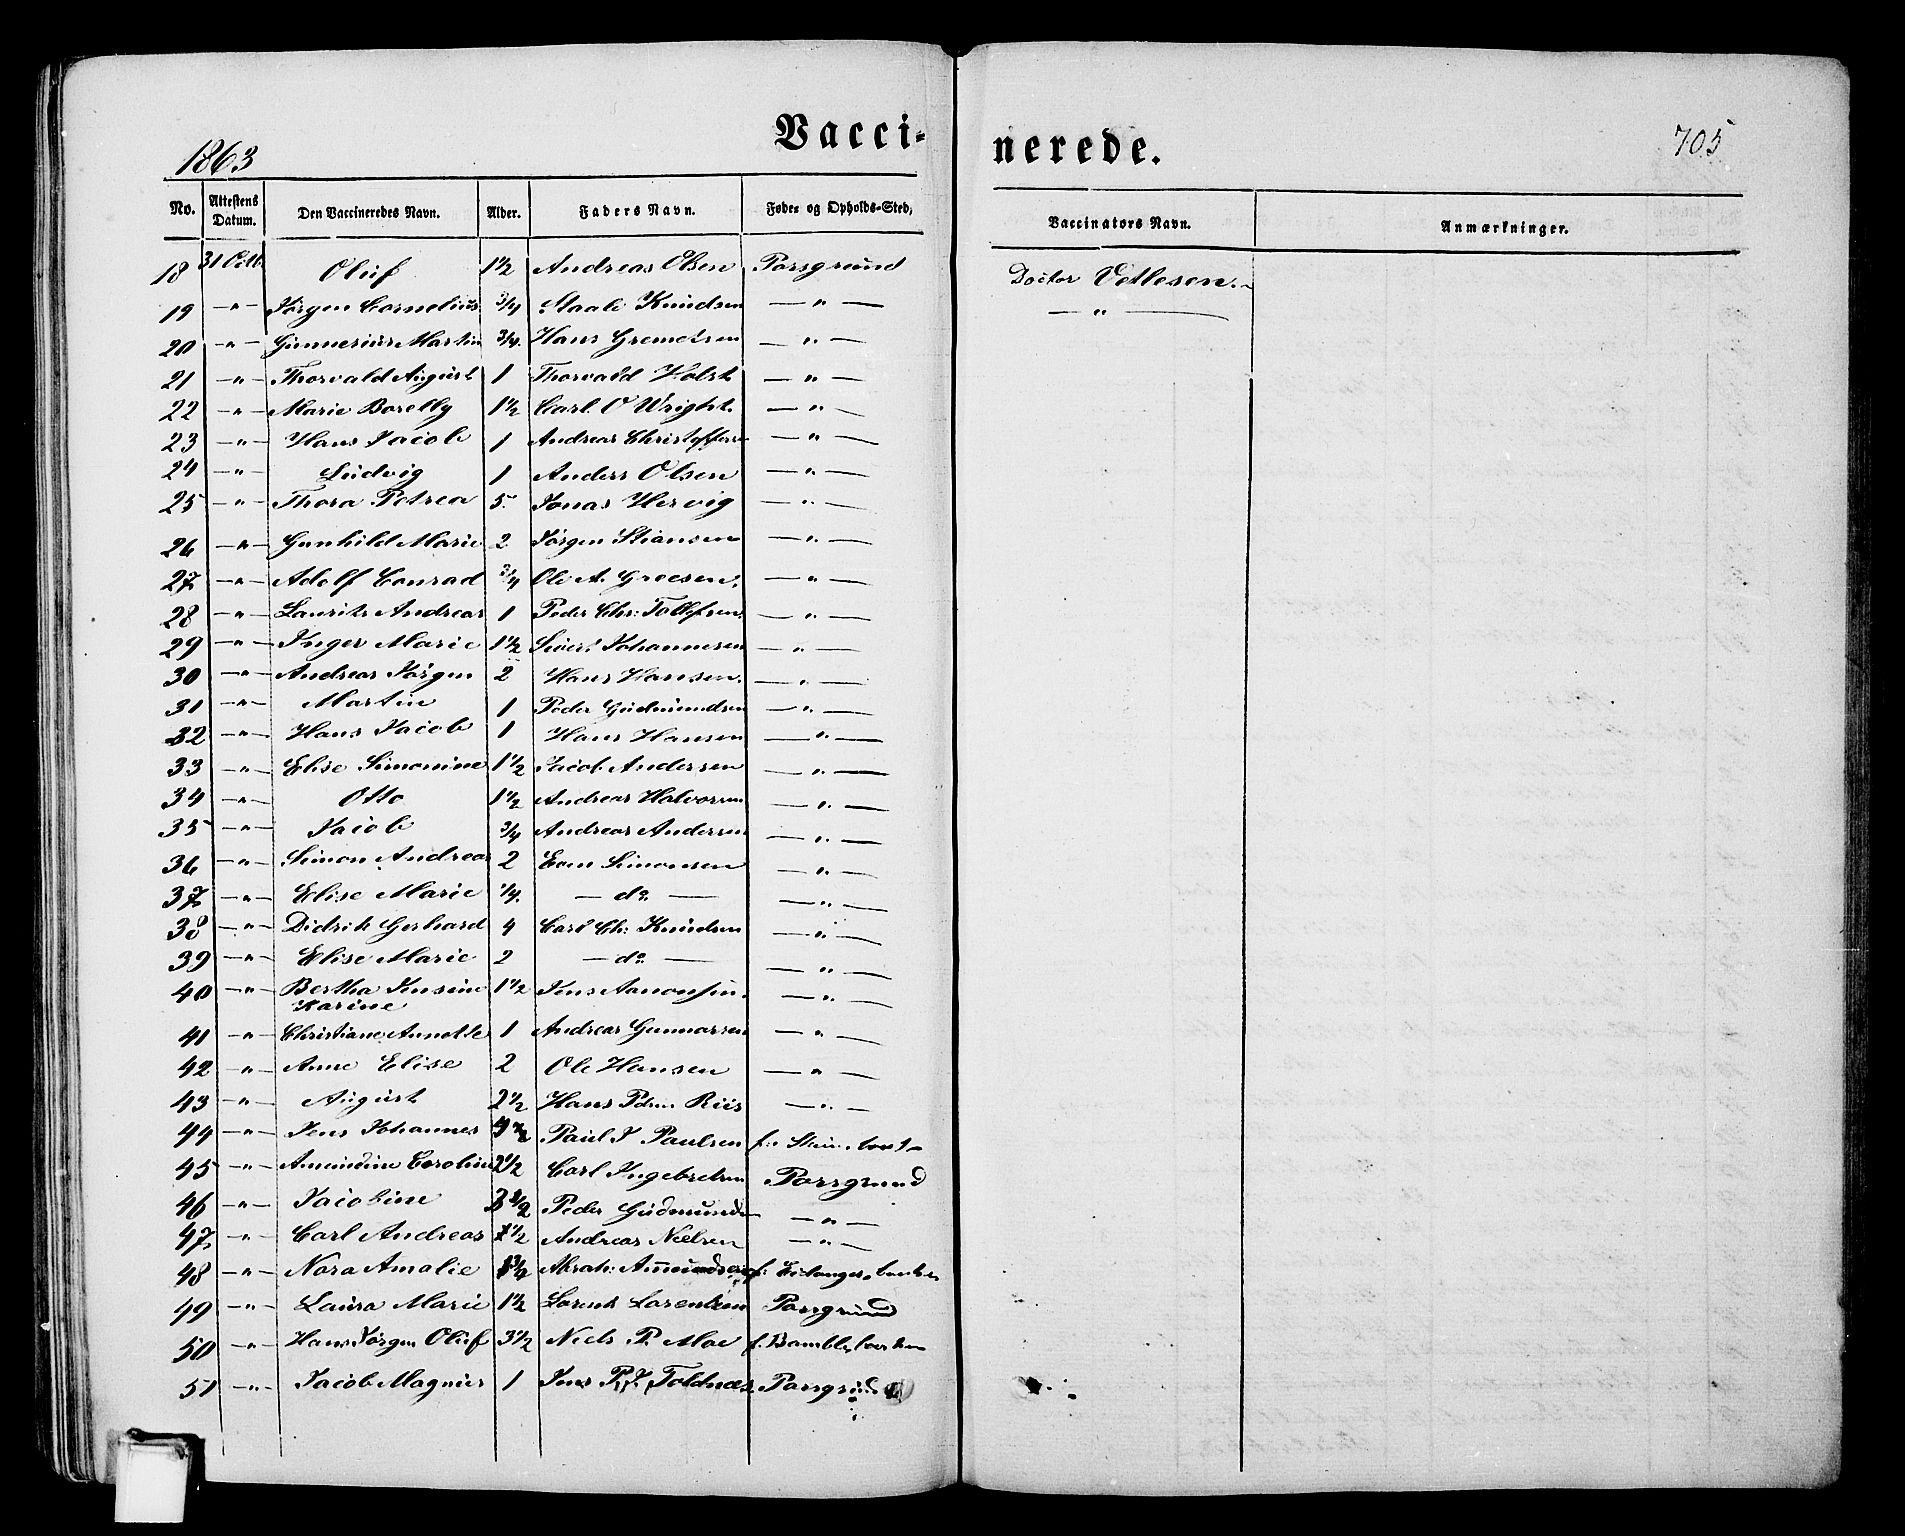 1863 Vacci- nerede. 705
No. Attestens Datum. Den Vaccineredes Navn. Alder. Faders Navn. Føde- og Opholds-Sted, Vaccinators Navn. Anmærkninger.
18 31 Octb. Oluf 1 1/2 Andreas Olsen Porsgrund Doctor Vetlesen.
19 -"- Jørgen Cornelius 3/4 Staale Knudsen -"- -"-
20 -"- Gunnerius Martin 3/4. Hans -"-
21 -"- Thorvald August 1 Thorvald Holst -"-
22 -"- Marie Borelly 1 1/2 Carl O Wright. -"-
23 -"- Hans Jacob 1 Andreas Christoffersen -"-
24 -"- Ludvig 1 Anders Olsen -"-
25 -"- Thora Petrea 5. Jonas Hervig -"-
26 -"- Gunhild Marie 2 Jørgen Stiansen -"-
27 -"- Adolf Conrad 3/4 Ole A. -"-
28 -"- Laurits Andreas 1 Peder Chr: Tollefsen. -"-
29 -"- Inger Marie 1 1/2 Sivert Johannesen -"-
30 -"- Andreas Jørgen 2 Hans Hansen. -"-
31 -"- Martin 1 Peder Gudmundsen -"-
32 -"- Hans Jacob 1 Hans Hansen -"-
33 -"- Elise Simonine 1 1/2 Jacob Andersen -"-
34 -"- Otto 1 1/2 Andreas Halvorsen -"-
35 -"- Jacob 3/4 Andreas Andersen -"-
36 -"- Simon Andreas 2 Even Simonsen -"-
37 -"- Elise Marie 1/4. - do - -"-
38 -"- Didrik Gerhard 4 Carl Ch: Knudsen -"-
39 -"- Elise Marie 2 - do - -"-
40 -"- Bertha Jensine 1 1/2 Jens Aanonsen. -"-
Karine
41 -"- Christiane Annette 1 Andreas Gunnarsen -"-
42 -"- Anne Elise 2 Ole Hansen -"-
43 -"- August 2 1/2 Hans Pdrs. Riis -"-
44 -"- Jens Johannes Paul J Paulsen
45 -"- Amundine Caroline 2 1/2 Carl Ingebretsen Porsgrund
46 -"- Jacobine Peder Gudmundsen -"-
47 -"- Carl Andreas 1 1/2 Andreas Nielsen -"-
48 -"- Nora Amalie Abrah: Amundsen f: Eidanger
49 -"- Laura Marie 1 1/2 Lorents Lorentzen Porsgrund
50 -"- Hans Jørgen Oluf 3 1/2 Niels P. Moe f. Bamble
51 -"- Jacob Magnus 1 Jens P. J. Toldnæs Porsgrund